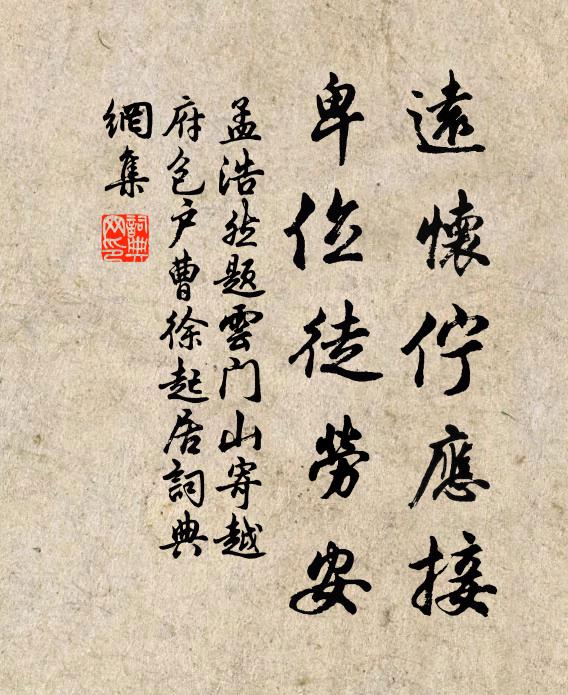 遠懷佇應接
卑位徒勞安
孟浩然題雲门山寄越
府包户曹徐起居詞典
網集
詞典网印